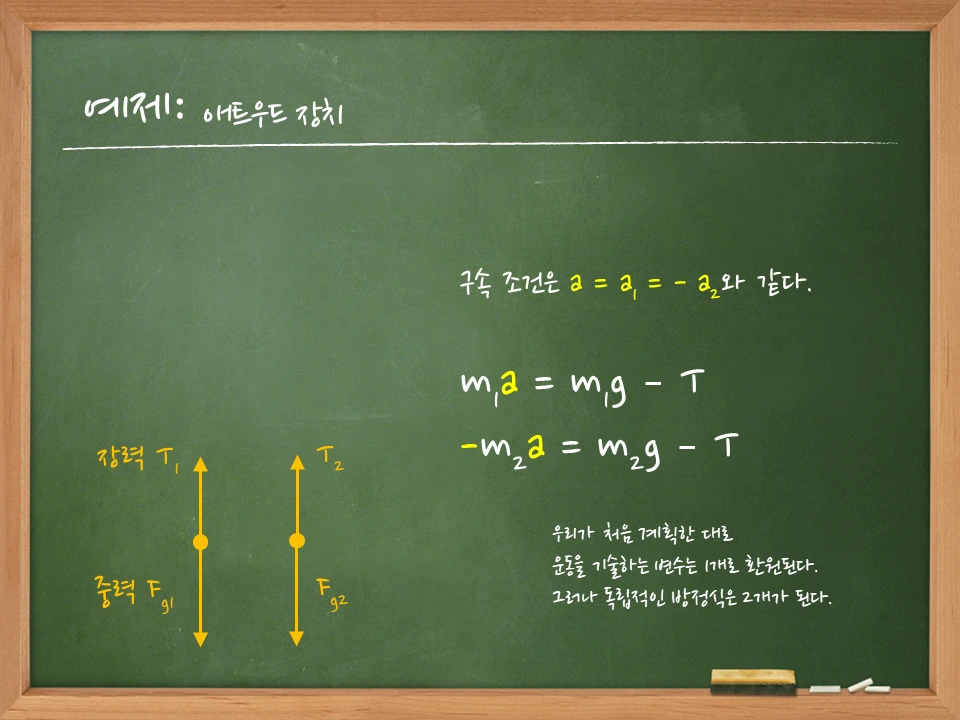 예제: 애트우드 장치
구속 조건은 a = a₁ = - a₂와 같다.
m₁a = m₁g - T
-m₂a = m₂g - T
장력 T₁
T₂
중력 F_g1
F_g2
우리가 처음 계획한 대로
운동을 기술하는 변수는 1개로 환원된다.
그러나 독립적인 방정식은 2개가 된다.